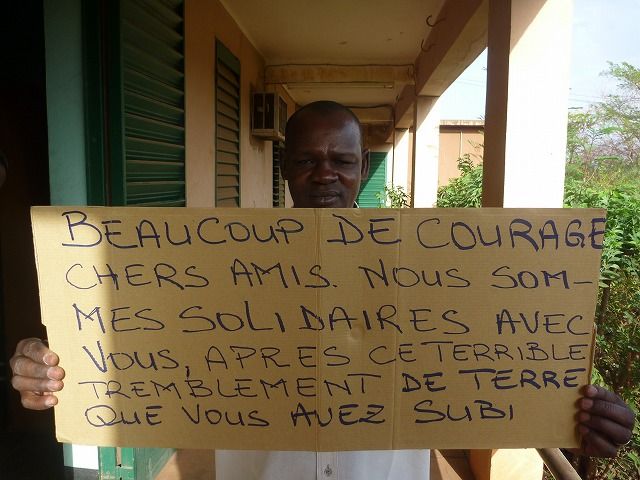 BEAUCOUP DE COURAGE
CHERS AMIS. NOUS SOM-
MES SOLIDAIRES AVEC
VOUS, APRES CE TERRIBLE
TREMBLEMENT DE TERRE
QUE VOUS AVEZ SUBI